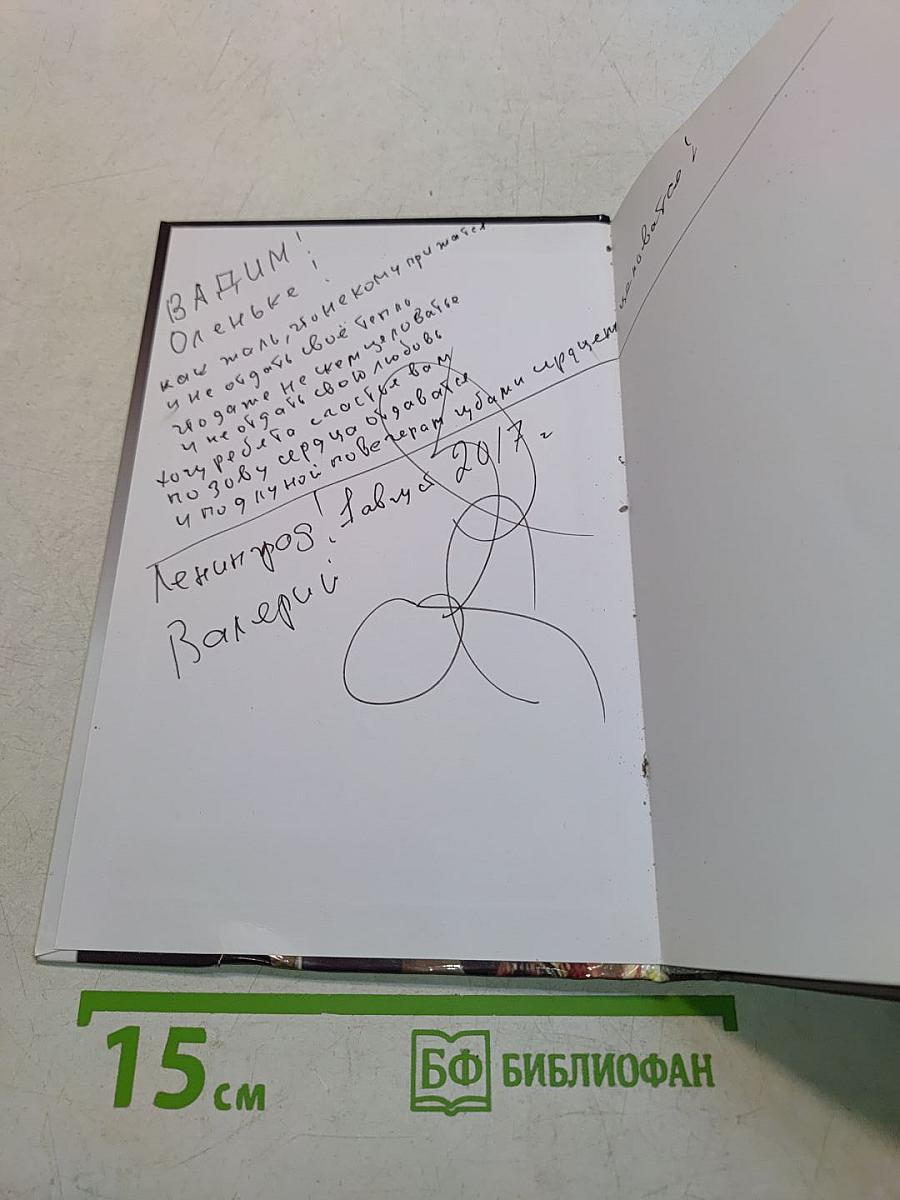 ВАДИМ!
Оленьке!
как жаль, что некому прижатся
и не отдать своё тепло
что даже не кем целоватье
и не отдать свою любовь
хочу ребята счастье вам
по зову сердца отдаватся
и под луной по вечерам губами сердцем целоватся!
Ленинград! 1 август 2017 г
Валерий
15 см
БФ БИБЛИОФАН